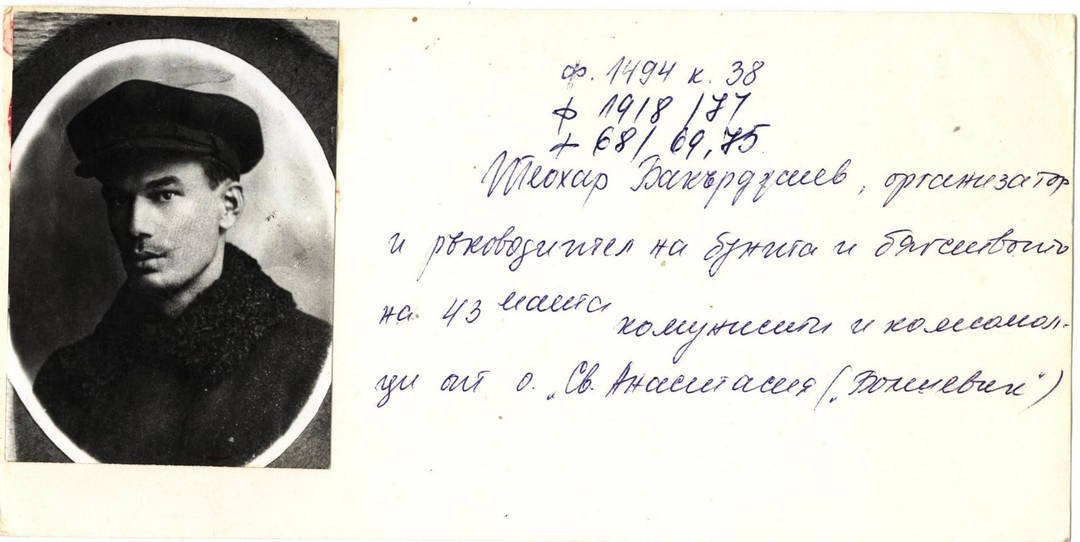 ф. 1494 к. 38
ф 1918 /77
+ 68/ 69,75
Теохар Бакърджиев, организатор
и ръководител на бунта и бягството
на 43 мата комунисти и комсомол-
ци от о. „Св. Анастасия („Болшевик“)